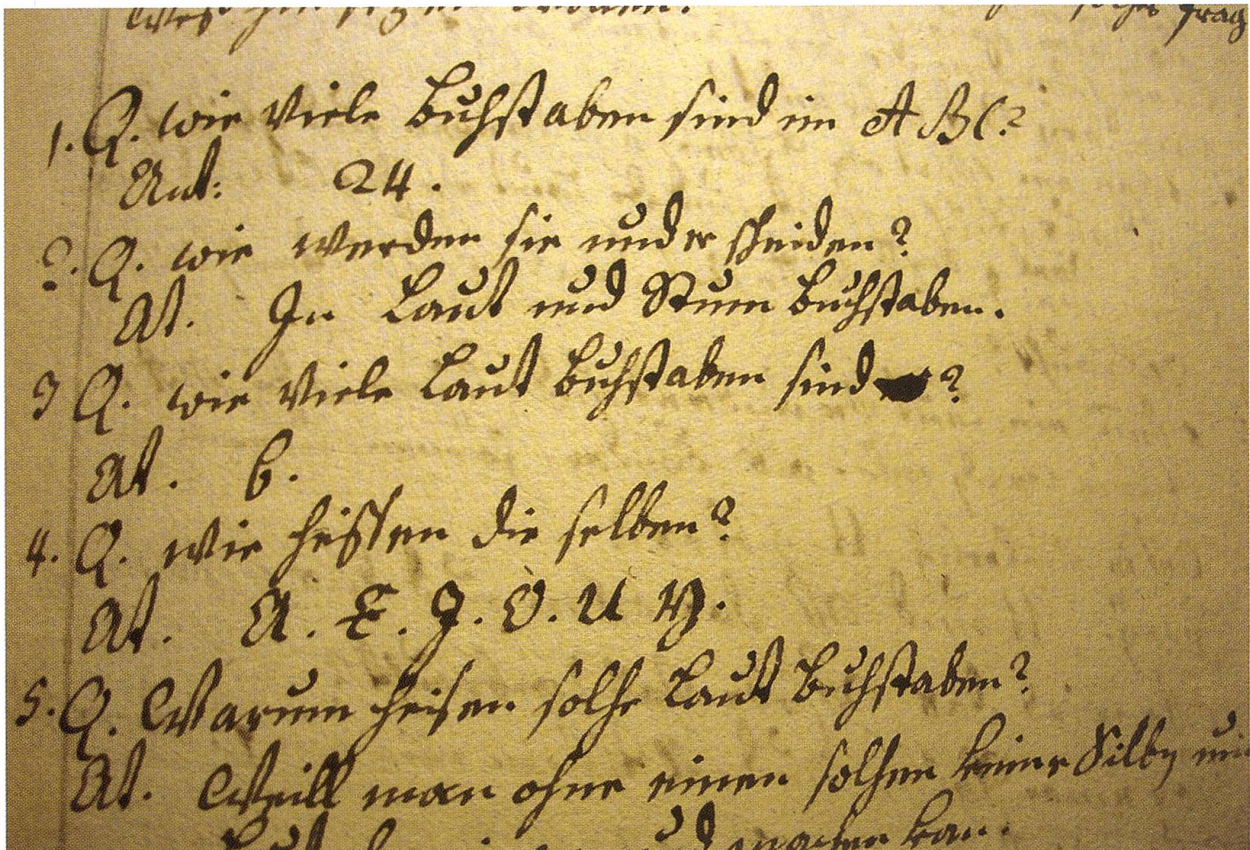 frag
1. Q. wie Viele Buhstaben sind im ABC?
Ant: 24.
2. Q. wie werden sie under sheiden?
At. In Laut und Stum buhstaben.
3 Q. wie Viele Laut buhstaben sind ?
At. 6.
4. Q. wie heissen die selben?
At. A. E. I. O. U Y.
5. Q. Warum heisen solhe Laut buhstaben?
At. Weill man ohne einen solhen keine Silby
und mahen kan.